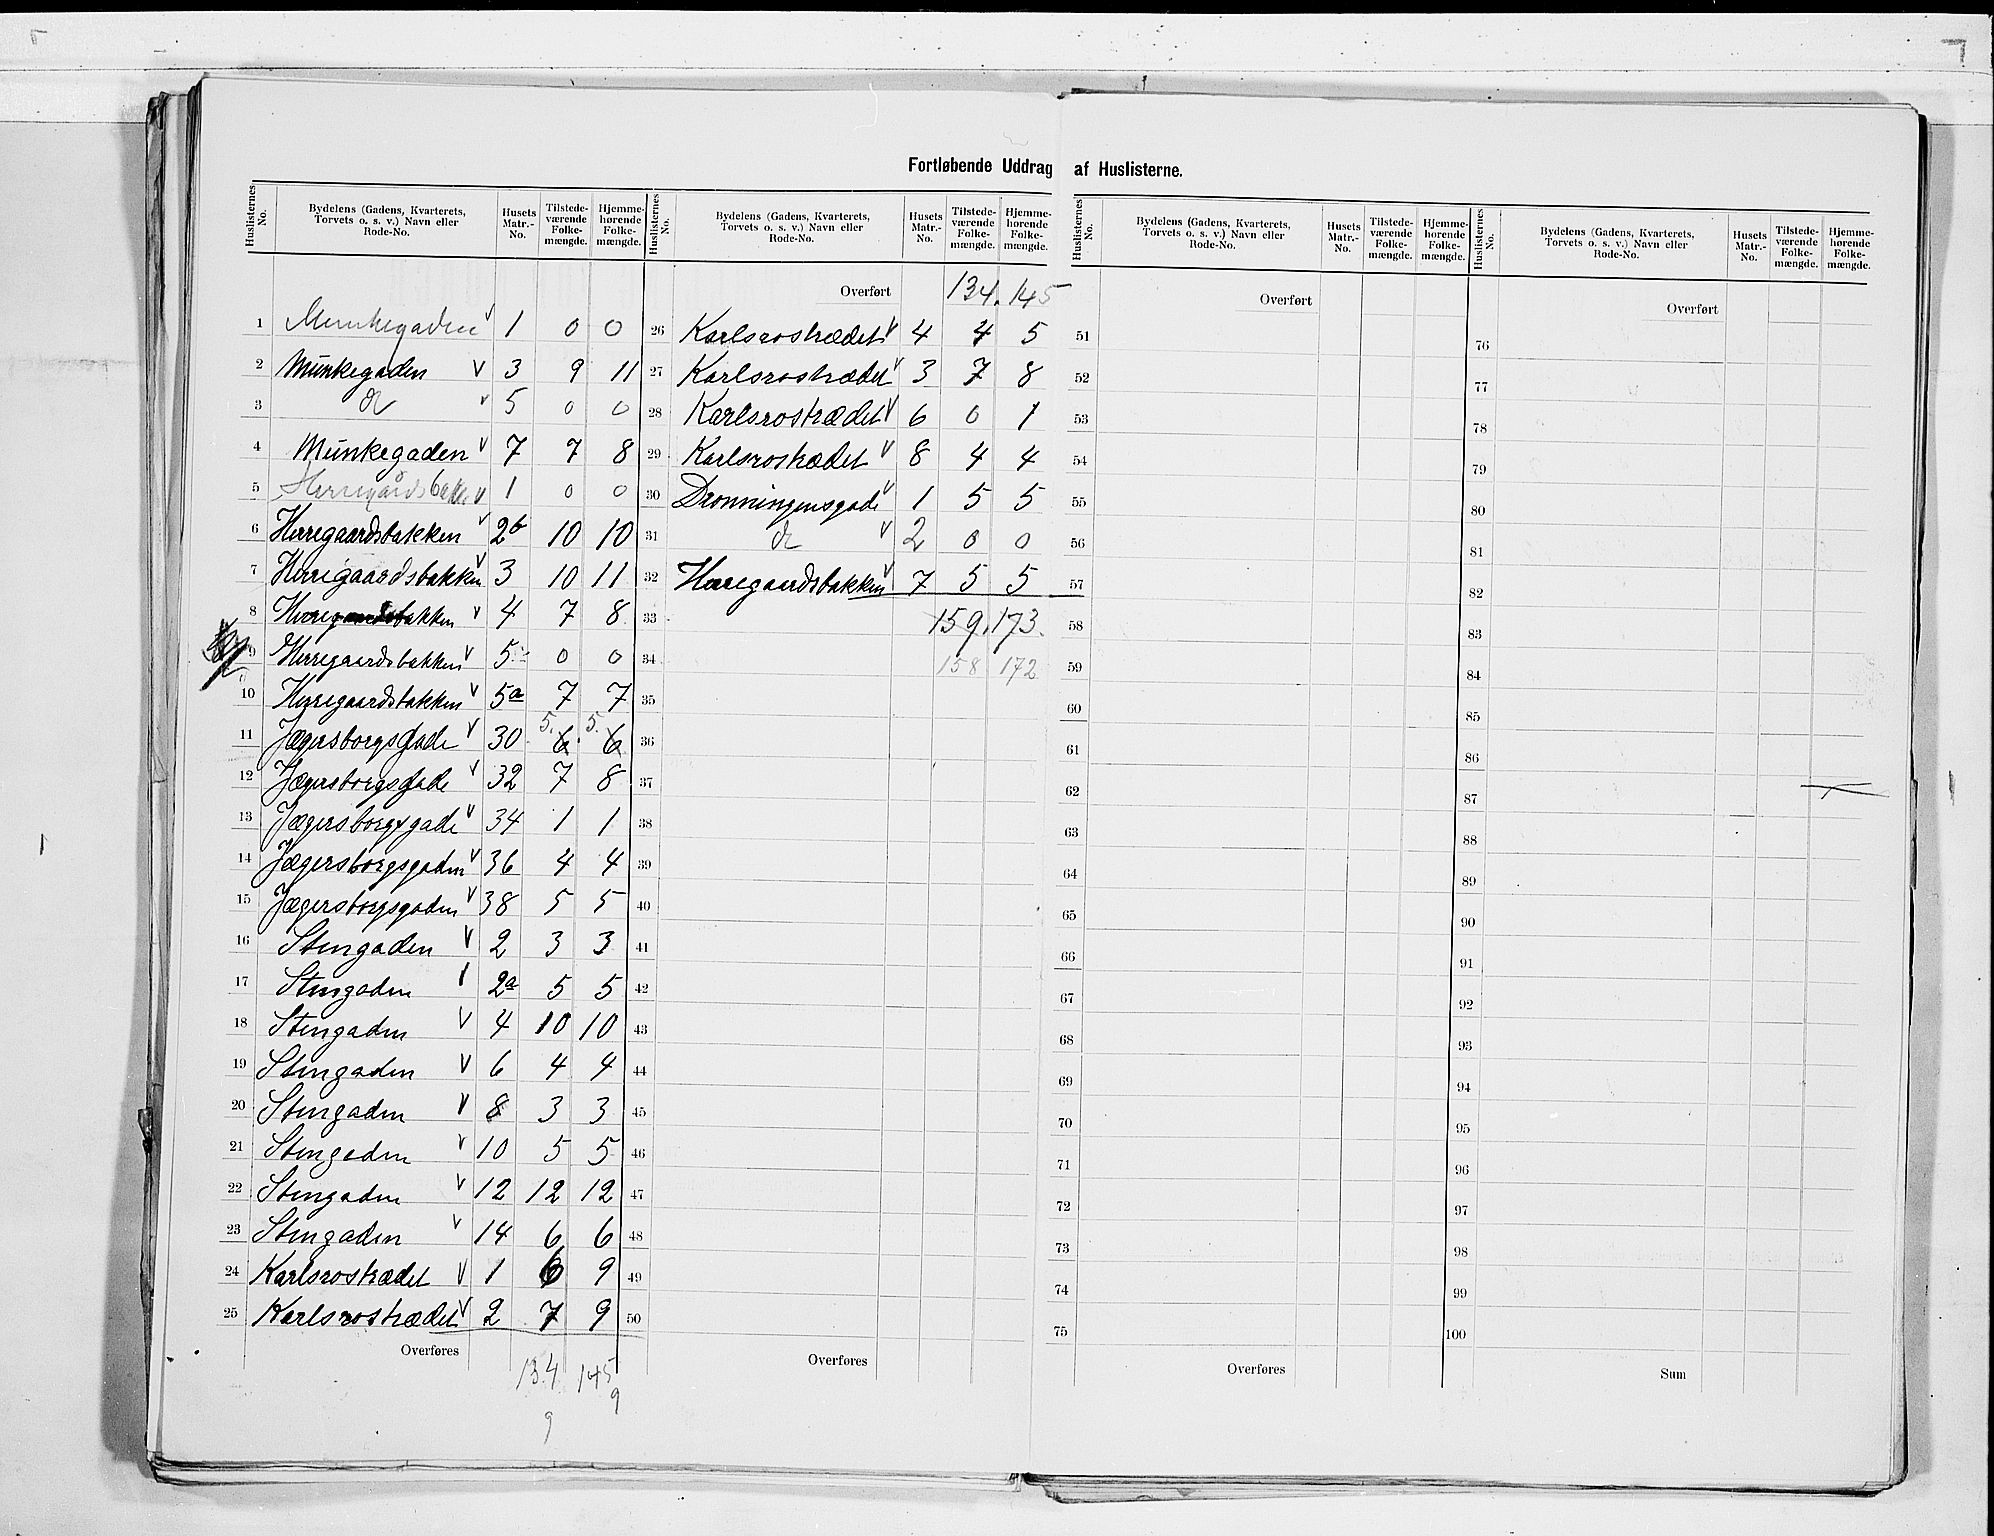 Fortløbende Uddrag af Huslisterne.
Huslisternes No. | Bydelens (Gadens, Kvarterets, Torvets o. s. v.) Navn eller Rode-No. | Husets Matr.-No. | Tilstedeværende Folkemængde. | Hjemmehørende Folkemængde.
1 Munkegaden v 1 0 0
2 Munkegaden v 3 9 11
3 do v 5 0 0
4 Munkegaden v 7 7 8
5 Herregårdsbakken v 1 0 0
6 Herregaardsbakken v 2b 10 10
7 Herregaardsbakken v 3 10 11
8 Herregaardsbakken v 4 7 8
9 Herregaardsbakken v 5 0 0
10 Herregaardsbakken v 5a 7 7
11 Jægersborgsgade v 30 5. 6. 5. 6
12 Jægersborgsgade v 32 7 8
13 Jægersborgsgade v 34 1 1
14 Jægersborgsgaden v 36 4 4
15 Jægersborgsgaden v 38 5 5
16 Stengaden v 2 3 3
17 Stengaden v 2a 5 5
18 Stengaden v 4 10 10
19 Stengaden v 6 4 4
20 Stengaden v 8 3 3
21 Stengaden v 10 5 5
22 Stengaden v 12 12 12
23 Stengaden v 14 6 6
24 Karlsrostrædet v 1 6 9
25 Karlsrostrædet v 2 7 9
Overføres 134 145
9 9
Huslisternes No. | Bydelens (Gadens, Kvarterets, Torvets o. s. v.) Navn eller Rode-No. | Husets Matr.-No. | Tilstedeværende Folkemængde. | Hjemmehørende Folkemængde.
Overført 134. 145
26 Karlsrostrædet v 4 4 5
27 Karlsrostrædet v 3 7 8
28 Karlsrostrædet v 6 0 1
29 Karlsrostrædet v 8 4 4
30 Dronningensgade v 1 5 5
31 do v 2 0 0
32 Herregaardsbakken v 7 5 5
33 159. 173.
34 158 172
35
36
37
38
39
40
41
42
43
44
45
46
47
48
49
50
Overføres
Huslisternes No. | Bydelens (Gadens, Kvarterets, Torvets o. s. v.) Navn eller Rode-No. | Husets Matr.-No. | Tilstedeværende Folkemængde. | Hjemmehørende Folkemængde.
Overført
51
52
53
54
55
56
57
58
59
60
61
62
63
64
65
66
67
68
69
70
71
72
73
74
75
Overføres
Huslisternes No. | Bydelens (Gadens, Kvarterets, Torvets o. s. v.) Navn eller Rode-No. | Husets Matr.-No. | Tilstedeværende Folkemængde. | Hjemmehørende Folkemængde.
Overført
76
77
78
79
80
81
82
83
84
85
86
87
88
89
90
91
92
93
94
95
96
97
98
99
100
Sum